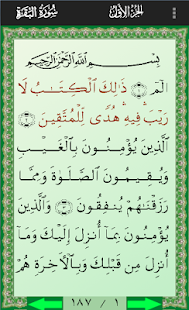 سُورَةُ البَقَرَةِ الجُزءُ الأوَّلُ
بِسْمِ اللَّهِ الرَّحْمَٰنِ الرَّحِيمِ
الٓمٓ ۝١ ذَٰلِكَ الْكِتَٰبُ لَا
رَيْبَ ۛ فِيهِ ۛ هُدًى لِّلْمُتَّقِينَ ۝٢
الَّذِينَ يُؤْمِنُونَ بِالْغَيْبِ
وَيُقِيمُونَ الصَّلَوٰةَ وَمِمَّا
رَزَقْنَٰهُمْ يُنفِقُونَ ۝٣ وَالَّذِينَ
يُؤْمِنُونَ بِمَآ أُنزِلَ إِلَيْكَ وَمَآ
أُنزِلَ مِن قَبْلِكَ وَبِالْءَاخِرَةِ هُمْ
١ / ١٨٧